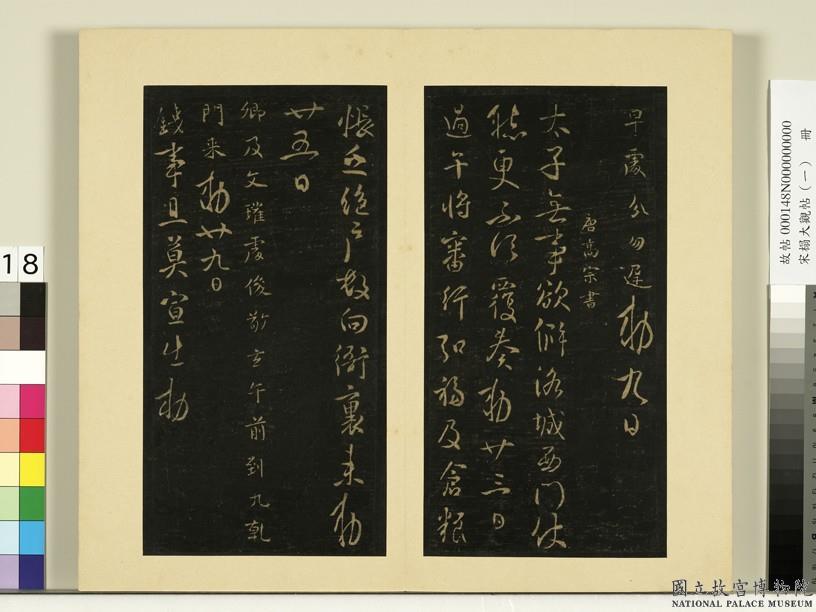 早處分勿遲勅九日
唐高宗書
太子無事欲僻洛城西門仗
聽更不須覆奏勅廿三日
過午將審行弘福及倉粮
帳並絕戶敕向衙裏來勅
廿五日
卿及文瓘處俊敬玄午前到九乾
門來勅廿九日
錢事且莫宣出勅
故帖 000148N000000000 冊
宋搨大觀帖(一)
18
國立故宮博物院
NATIONAL PALACE MUSEUM